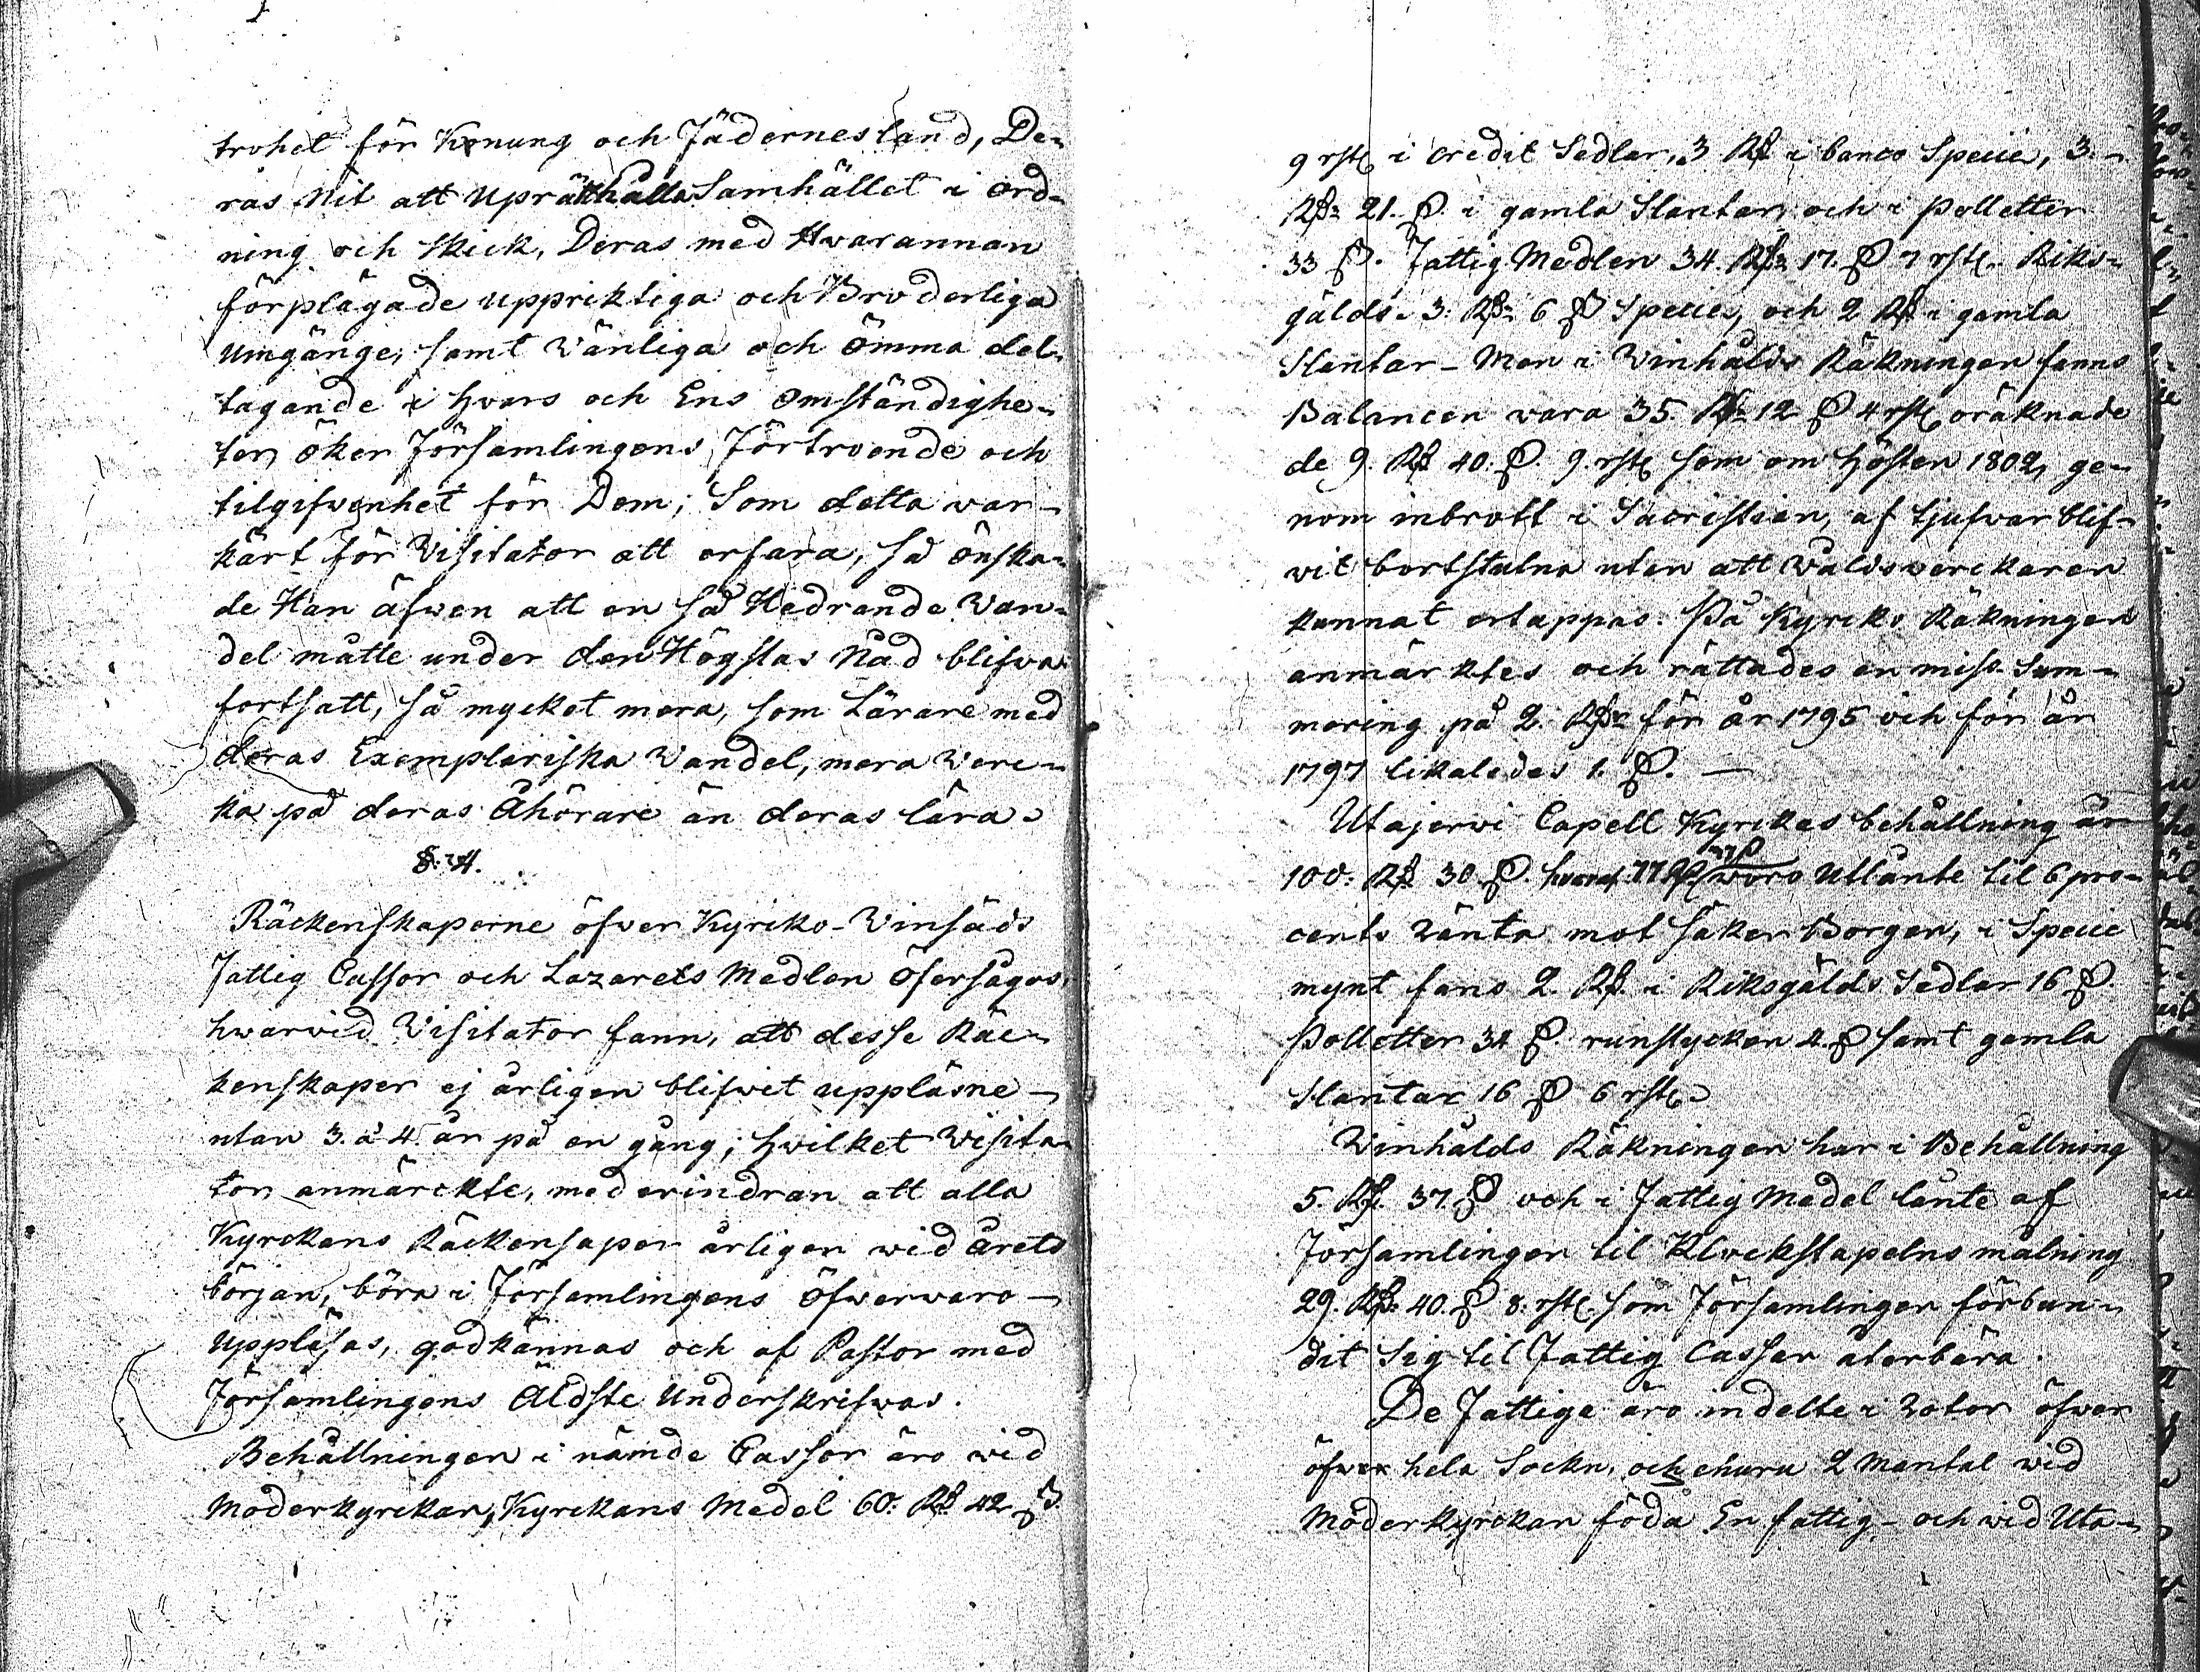 trohet för Konung och Fädernesland, De-
ras Nit att Uprätthålla Samhället i ord-
ning och skick, Deras med Hvarannan
förplägade uppriktiga och Broderliga
Umgänge, samt Wänliga och Ömma del-
tagande i hvars och Ens Omständighe-
ter, öker Församlingens Förtroende och
tilgifvenhet för Dem; Som detta var
kärt för Visitator att erfara, så önska-
de Han äfwen att en så Hedrande Wan-
del måtte under den Högstas Nåd blifwa
fortsatt, så mycket mera, som Lärare med
deras Exemplariska Wandel, mera Werc-
ka på deras Åhörare än deras lära.
§. 4.
Räckenskaperne öfver Kyrko-Vinsäds
Fattig Cassor och Lazarets Medlen Öfersågos,
hwarwid Visitator fann, att desse Räc-
kenskaper ej årligen blifwit uppläsne
utan 3. à 4. år på en gång; hvilket Visita-
tor anmärckte, med erindran att alla
Kyrckans Räckensaper årligen wid årets
början, böra i Församlingens Öfwerwaro
Uppläsas, godkännas och af Pastor med
Församlingens Äldste Underskrifwas.
Behållningen i nämde Cassor äro wid
Moderkyrckan, Kyrckans Medel 60. Rd 42 ß
9 rst i Credit Sedlar, 3 Rd i banco Specie, 3.
Rd 21. ß. i gamla Slantar och i Polletter
33 ß. Fattig Medlen 34. Rd 17. ß 7 rst. Riks-
gälds. 3. Rd 6 ß Specie, och 2 Rd i gamla
Slantar – Men i Winhålds Räkningen fanns
Balancen vara 35. Rd 12 ß 4 rst oräknade
de 9. Rd 40. ß. 9. rst som om hösten 1802, ge-
nom inbrott i Sacristian, af tjufvar blif-
vit bortstulna utan att Wåldsverckaren
kunnat ertappas. På Kyrko Räkningen
anmärktes och rättades en miss-Sum-
mering på 2. Rd för år 1795 och för år
1797 likaledes 1. ß.
Utajervi Capell Kyrckas behållning är
100. Rd 30 ß. hvaraf 77 Rd woro Utlånte til 6 pro-
cents Ränta mot säker Borgen, i Specie
mynt fans 2. Rd. i Riksgälds Sedlar 16 ß.
Polletter 34 ß. runstycken 4. ß samt gamla
Slantar 16 ß 6 rst.
Winhålds Räkningen har i Behållning
5. Rd. 37. ß och i Fattig Medel lånte af
Församlingen til Klockstapelns målning
29. Rd. 40. ß 8. rst. som Församlingen förbun-
dit sig til Fattig Cassan återbära.
De Fattige äro indelte i Rotor öfver
öfwer hela Sockn, och ehuru 2 Mantal wid
Moderkyrckan föda En fattig – och wid Uta-